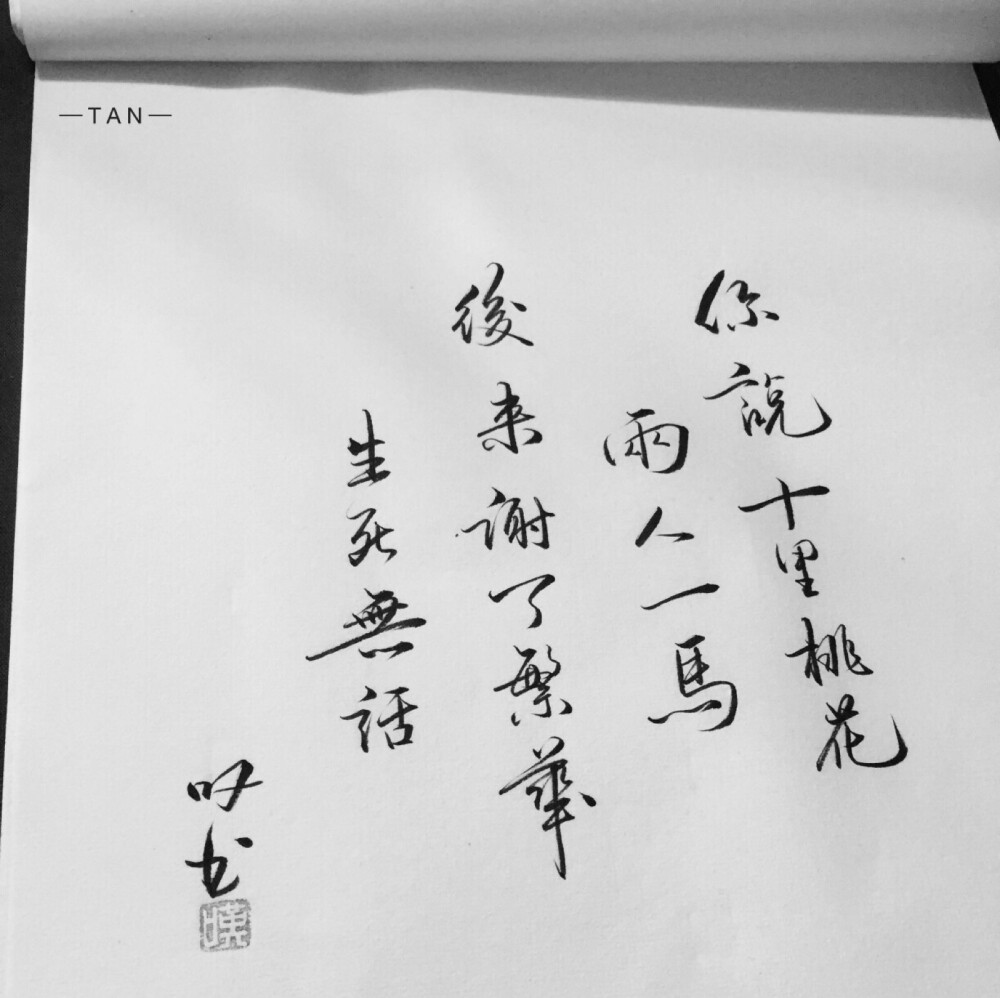 —TAN—
你說十里桃花
兩人一馬
後来謝了繁華
生死無話
叹书